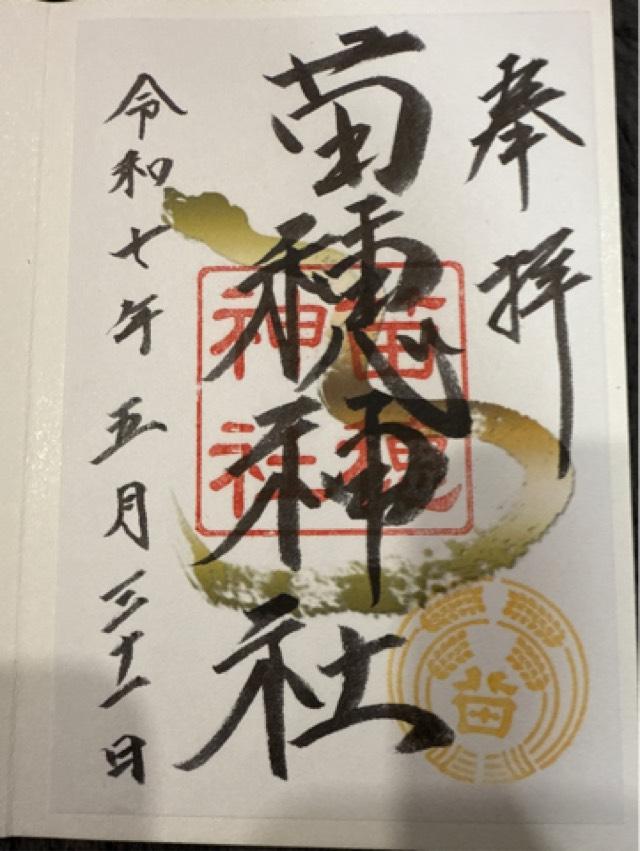 奉拝
苗穂神社
苗穂
神社
苗
令和七年五月三十一日